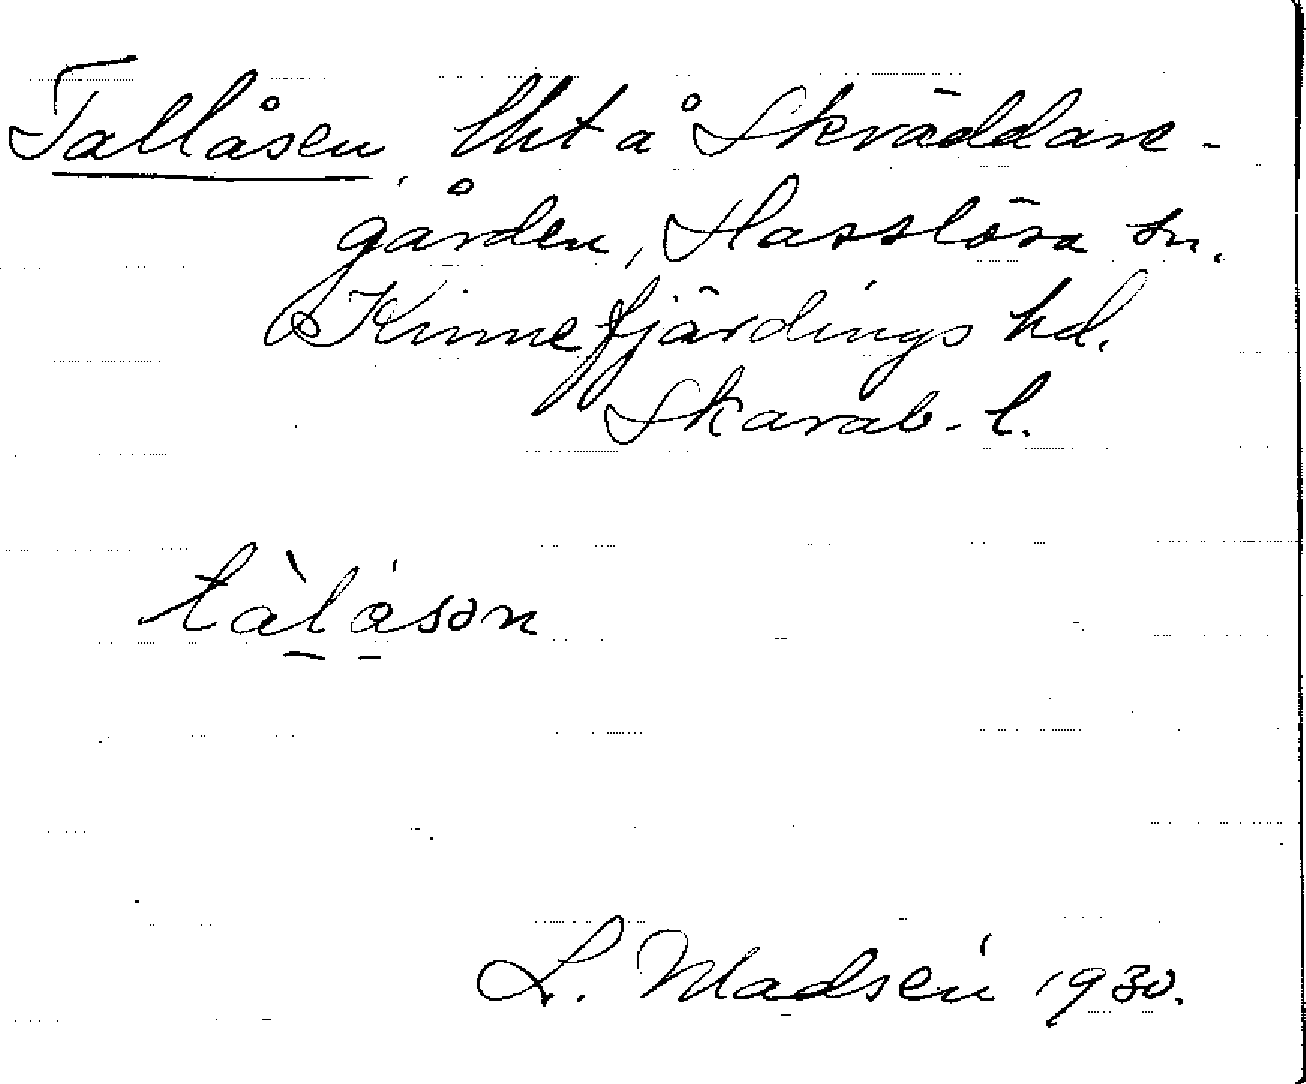 Tallåsen, lht å Skräddare-
gården, Hasslösa sn.
Kinnefjärdings hd.
Skarab. l.
tàlåsən
L. Madsén 1930.